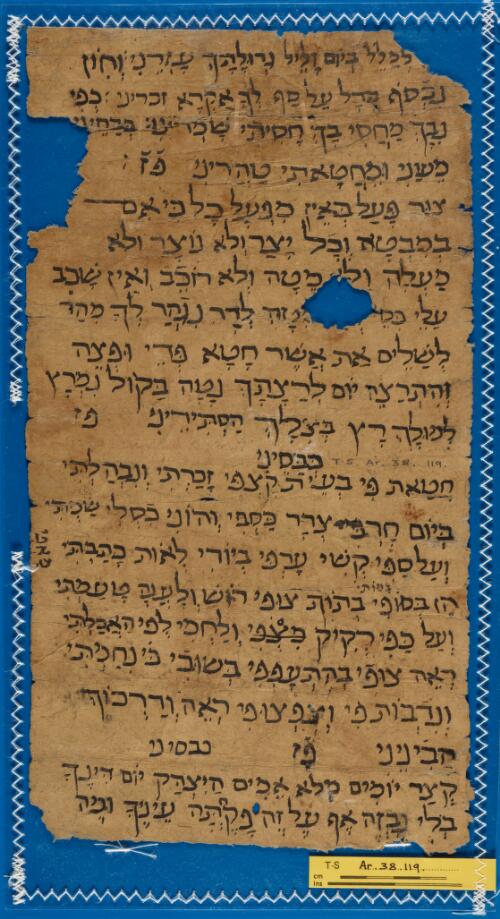 לכלל ביום וליל גדולתך עזרני וחון
נכסף בדל על סף לך אקרא זכריני כפי
נבך מחסי בך חסיתי שמריני בבחיני
מעוני ומחטאתי טהריני פז
צור פעל באין מפעל כל כי אם
במבטא וכל יצר ולא נוצר ולא
מעלה ולא מטה ולא רוכב ואין שכב
עלי לדר נבחר לך מהר
לשלים את אשר חטא פדי ופצה
והתרצה יום לרצתך נטה בקול נמרץ
למולך רץ בצלך הסתיריני פז
כבסיני
T-S Ar. 38. 119.
חטאת פי בעית קצפי זכרתי ונבהלתי
ביום חרפי צרר כספי והוני כסלי שמתי
ועל ספי קשי ערפי ביודי לאות כתבתי
הז בסופי בתוך צופי רוש ולענה טעמתי
ועל כפי רקוק מצפי ולחמי לפי האכלתי
ראה צופי בהתעפפי בשובי כי נחמתי
ונדבות פי וצפצופי ראה ודרכיך
הביניני פז נבסיני
קצר יומים מלא אמים היצדק יום דינך
בלי נבזה אף על זה פקחתה עיניך ומה
T-S Ar. 38. 119
cm
ins